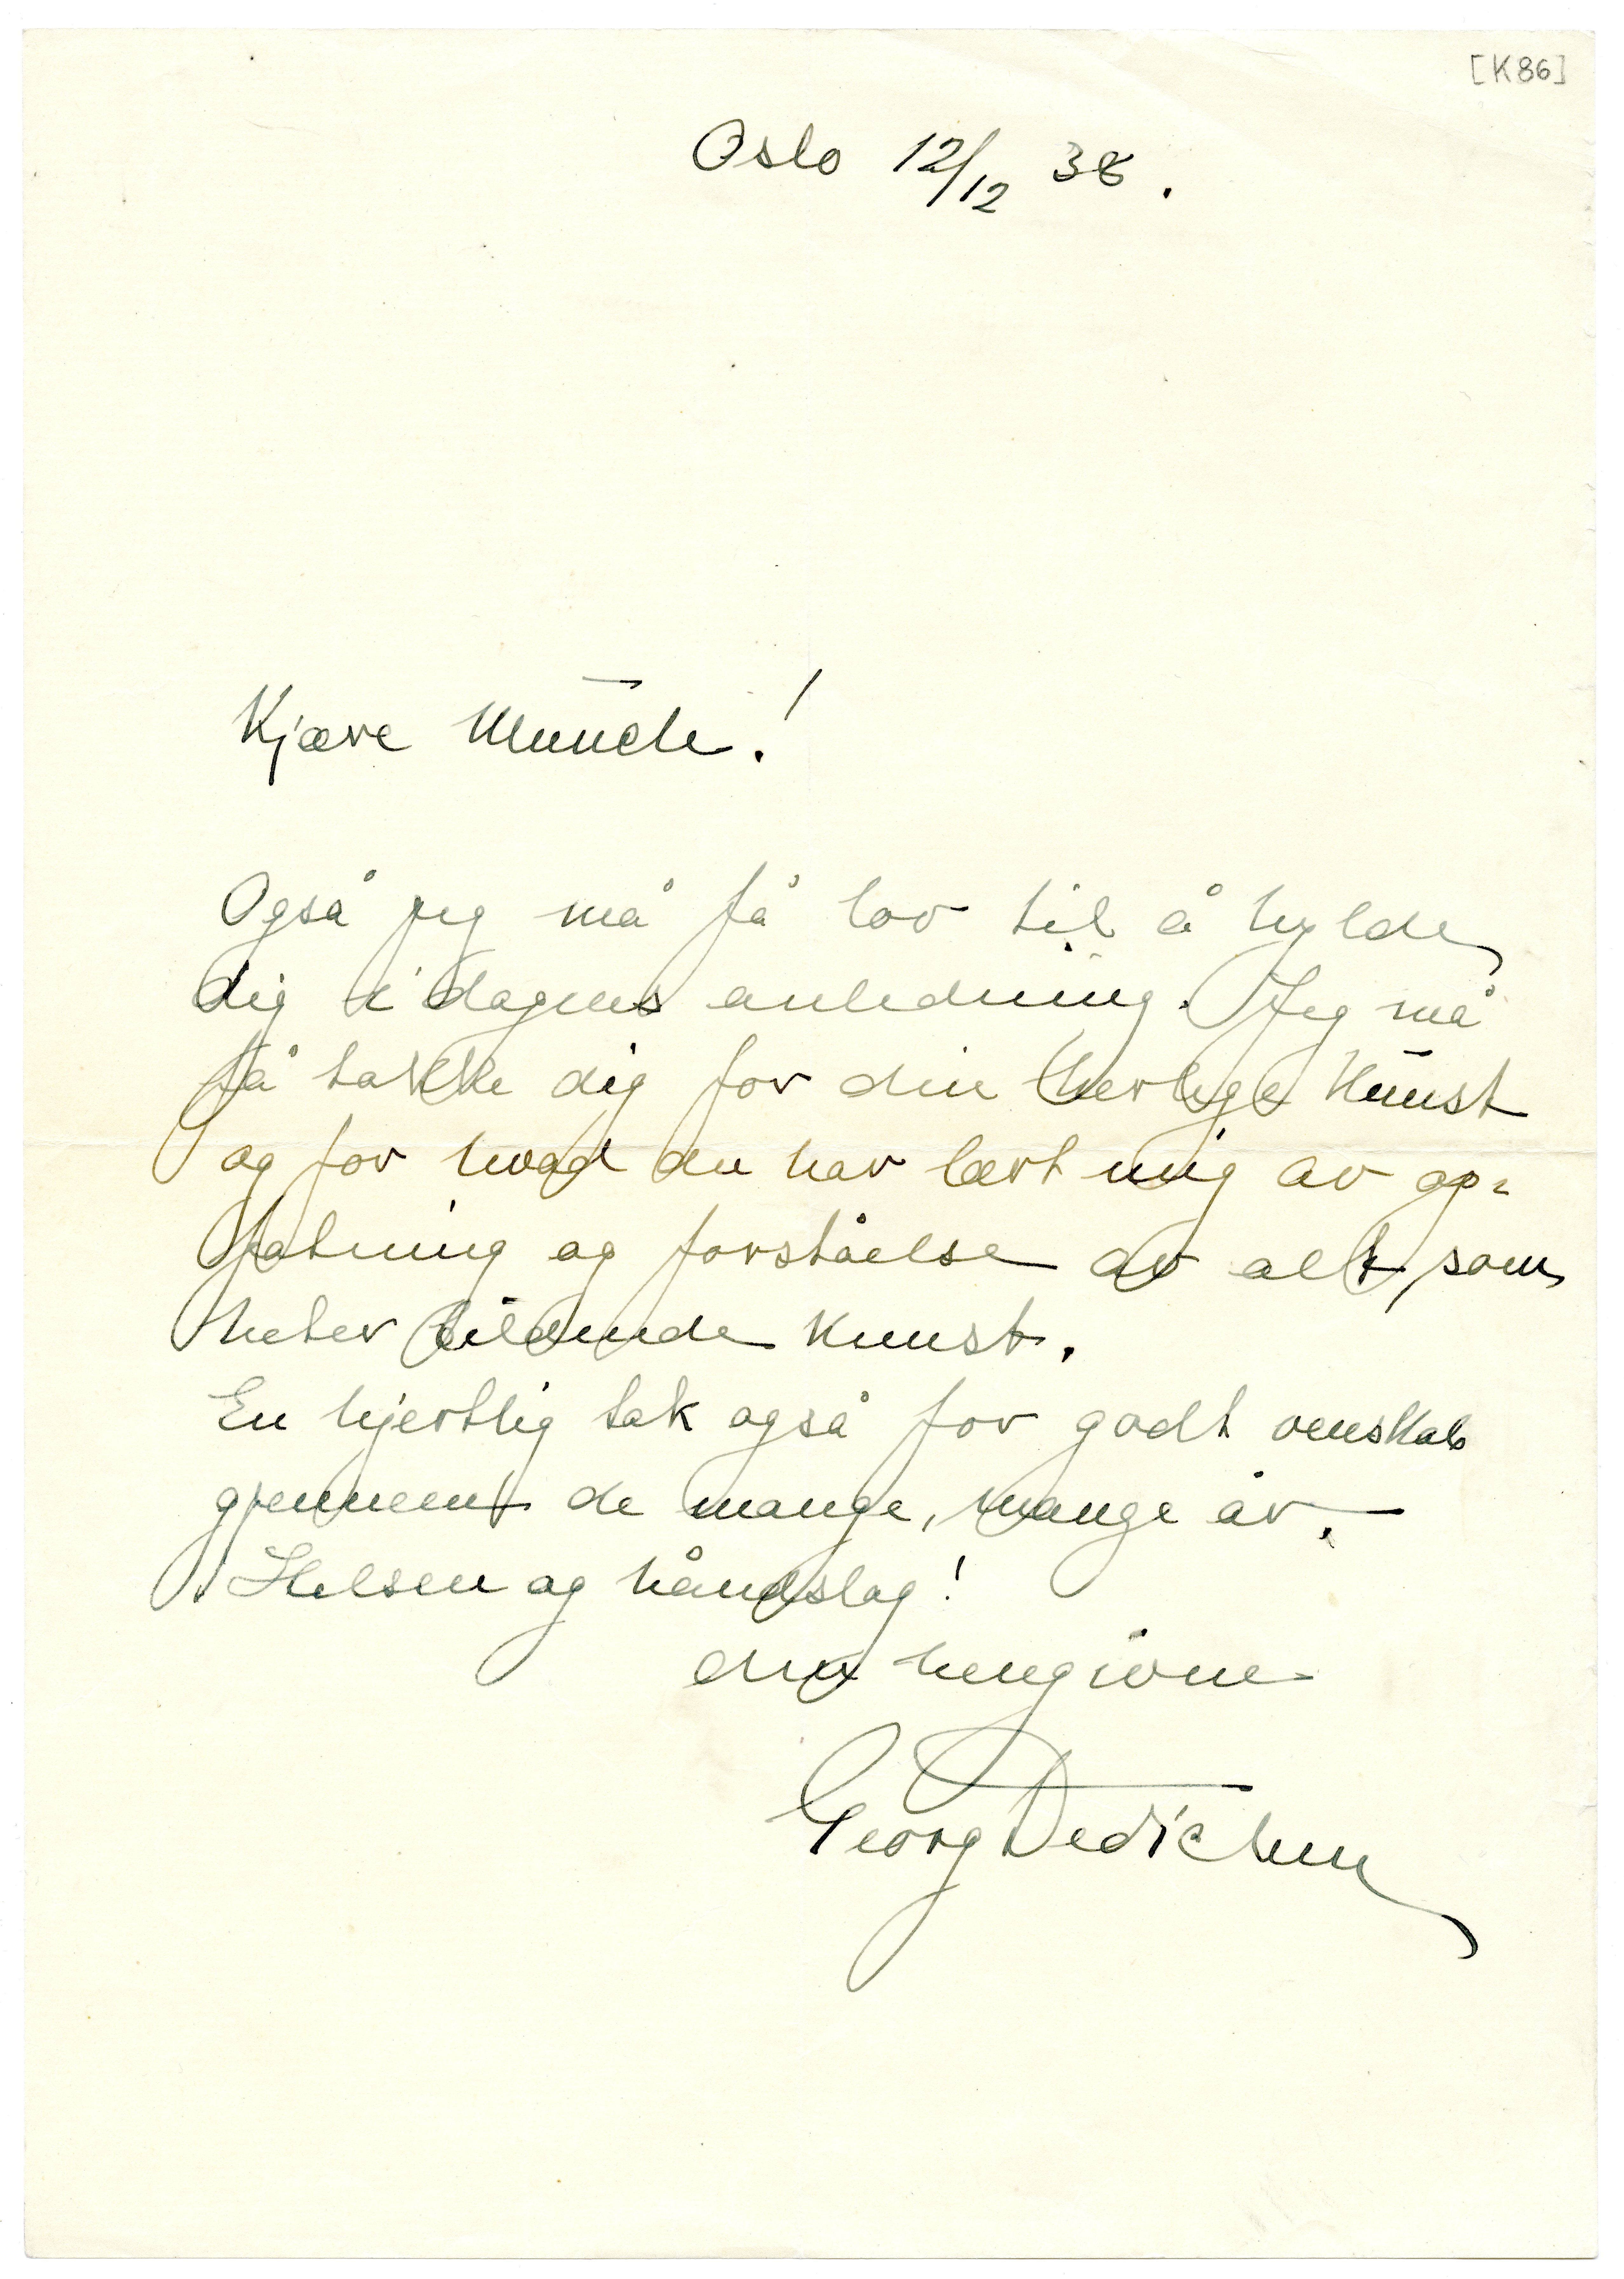 [K86]
Oslo 12/12 38.
Kjære Munch!
Også jeg må få lov til å hylde
dig i dagens anledning. Jeg må
få takke dig for din herlige Kunst
og for hvad du har lært mig av op-
fatning og forståelse av alt, som
heter bildende Kunst.
En hjertlig tak også for godt venskab
gjennem de mange, mange år.
Helsen og håndslag!
din hengivne
Georg Dedichen